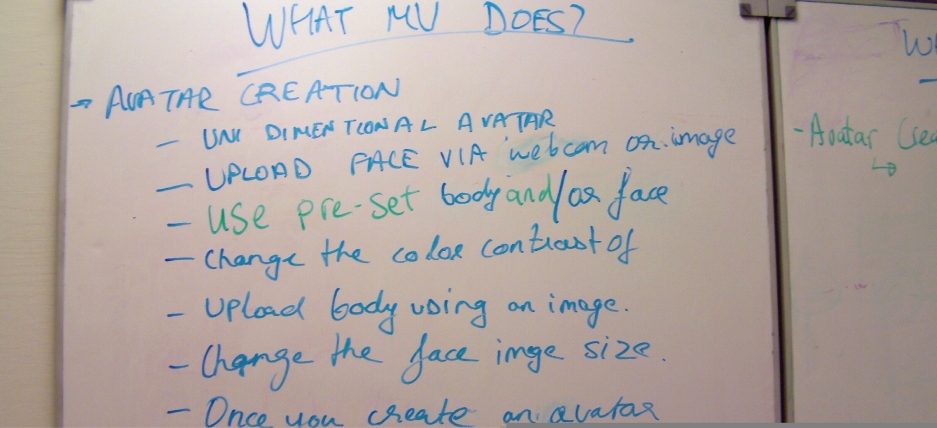 WHAT MV DOES?
→ AVATAR CREATION
- UNI DIMENTIONAL AVATAR
- UPLOAD FACE VIA webcam or image
- USe pre-set body and/or face
- Change the color contrast of
- Upload body using an image.
- Change the face imge size.
- Once you create an avatar
- Avatar Crea